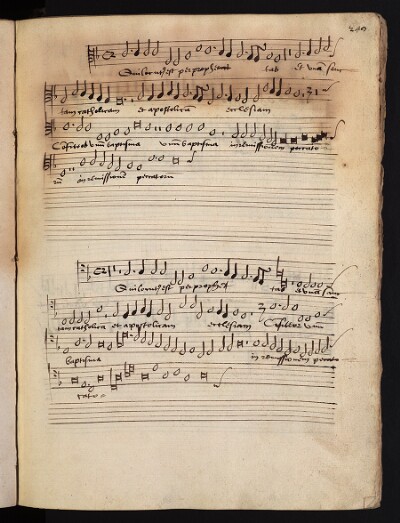 Qui locutus est per prophetas tas et unã sanc
tam catholicam et apostolicam ecclesiam
Cõfiteor unũ baptisma unũ baptisma in remissionem peccato
rũ in remissionẽ peccatorũ
Qui locutus est per prophet tas et unã sanc
tam catholicã et apostolicam ecclesiam Cõfiteor unũ
baptisma in remissionem pecca
toꝝ